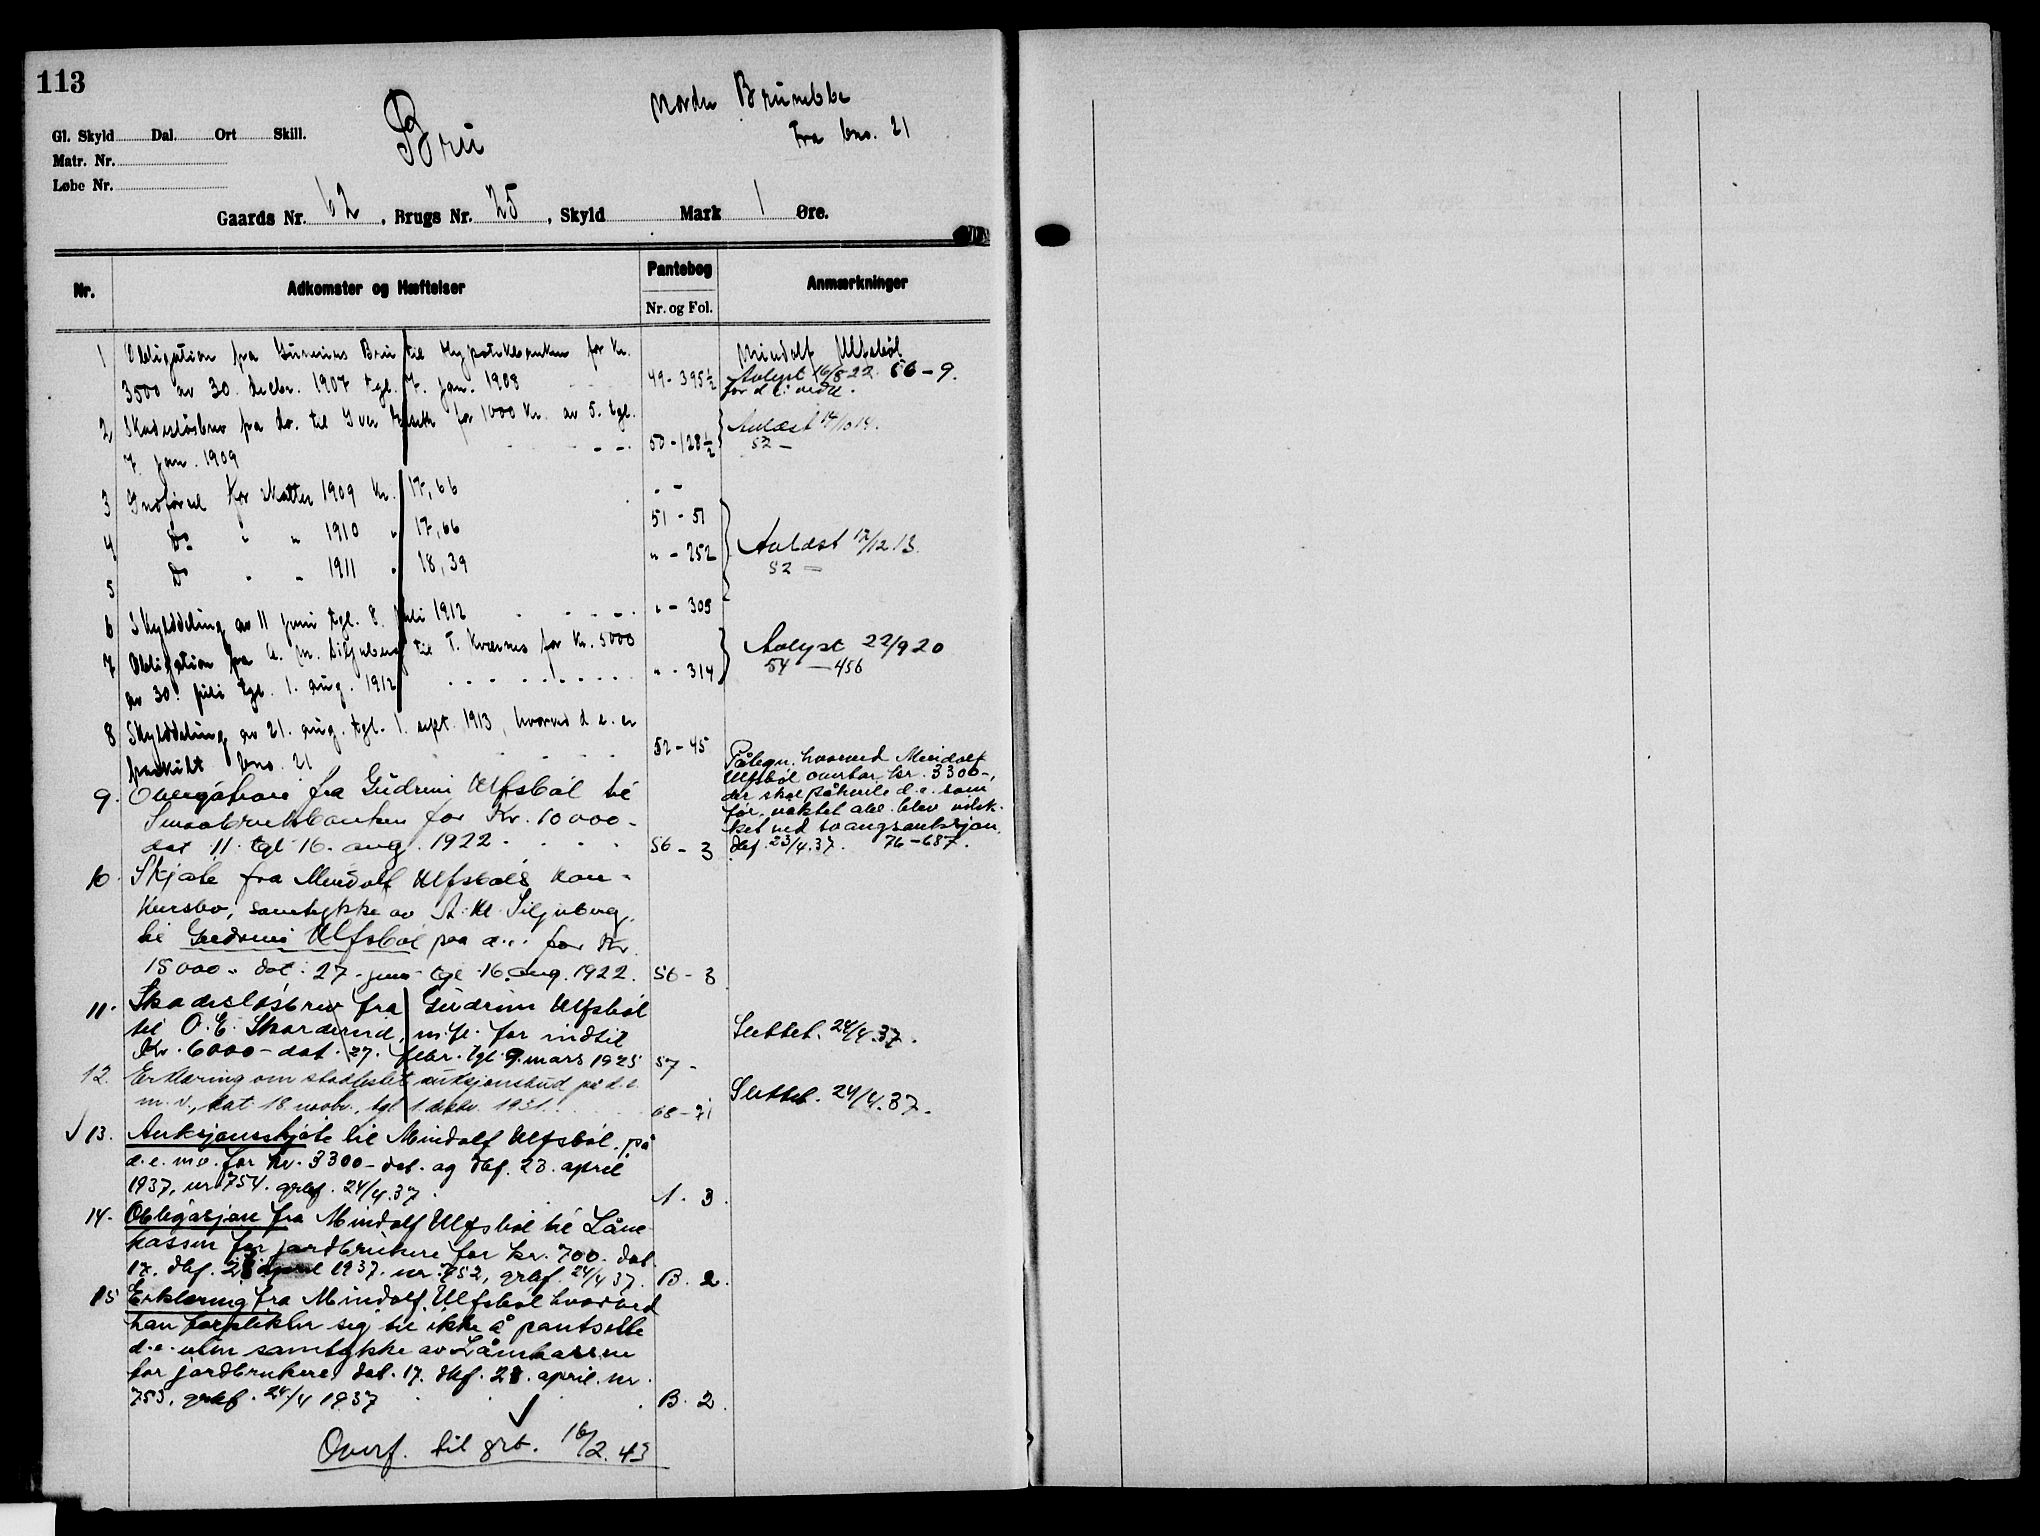 113
Gl. Skyld Dal. Ort Skill.
Matr. Nr.
Løbe Nr.
Bru
Nordre
Fra bno. 21
Gaards Nr. 62, Brugs Nr. 25, Skyld Mark 1 Øre.
Nr.
Adkomster og Hæftelser
Pantebog
Nr. og Fol.
Anmærkninger
1 Obligation fra Gunerius Bru til Hypotekbanken for Kr.
3500 av 30. decbr. 1907 tgl. 7. jan. 1908 49-395½
Mindolf Ulfsbøl
Avlyst 16/8 22. 56-9.
for d.e. vedk.
2 Skadesløsbrev fra do. til Iver for 1000 Kr. av 5. tgl.
7. jan. 1909 50-128½
Avlæst 17/10 14.
52 —
3 Indførsel for skatter 1909 Kr. 17,66 51-51
4 Do " " 1910 " 17,66 " - 252
5 Do " " 1911 " 18,39 " - 305
Avlæst 12/12 13.
52 —
6 Skylddeling av 11 juni tgl. 8. juli 1912
7 Obligation fra A. M. Siljuberg til T. Kværnes for Kr. 5000
av 30. juli tgl. 1. aug. 1912 " - 314
Avlyst 22/9 20
54 — 456
8 Skylddeling av 21. aug. tgl. 1. sept. 1913, hvorved d.e. er
fraskilt bno. 21 52-45
9. Obligation fra Gudrun Ulfsbøl til
Smaabrukbanken for Kr. 10000-
dat 11. tgl 16. aug. 1922. 56-3
Påtegn. hvorved Mindolf
Ulfsbøl overtar kr. 3300-,
der skal påhvile d.e. som
før, vaktet alle blev
ved tvangsauksjon.
dbf. 23/4.37. 76-687.
10. Skjøte fra Mindolf Ulfsbøls kon-
kursbo, samtykke av A. M. Siljuberg,
til Gudrun Ulfsbøl paa d.e. for Kr
15000- dat. 27. juni tgl 16. aug. 1922. 56-3
11. Skadesløsbrev fra Gudrun Ulfsbøl
til O. E. Skarderud m.fl. for indtil
Kr. 6000- dat. 27. febr. tgl 9. mars 1925 57-
Slettet. 24/4.37.
12. Erklæring om stadfestet auksjonsbud på d.e.
m.v., dat 18 novbr., tgl 1. decbr. 1931. 68-71
Slettet. 24/4.37.
13. Auksjonsskjøte til Mindolf Ulfsbøl på
d.e. m.v. for kr. 3300- dat. og dbf. 23. april
1937, nr 754. grbf. 24/4.37. A. 3.
14. Obligasjon fra Mindolf Ulfsbøl til Låne-
kassen for jordbrukere for kr. 700. dat.
17. dbf. 23 april 1937. nr. 752, grbf. 24/4 37. B. 2.
15 Erklæring fra Mindolf Ulfsbøl hvorved
han forplikter sig til ikke å pantsette
d.e. uten samtykke av Lånekassen
for jordbrukere dat. 17. dbf. 23. april. nr.
753. grbf. 24/4 1937. B. 2.
Overf. til grb. 16/2.43